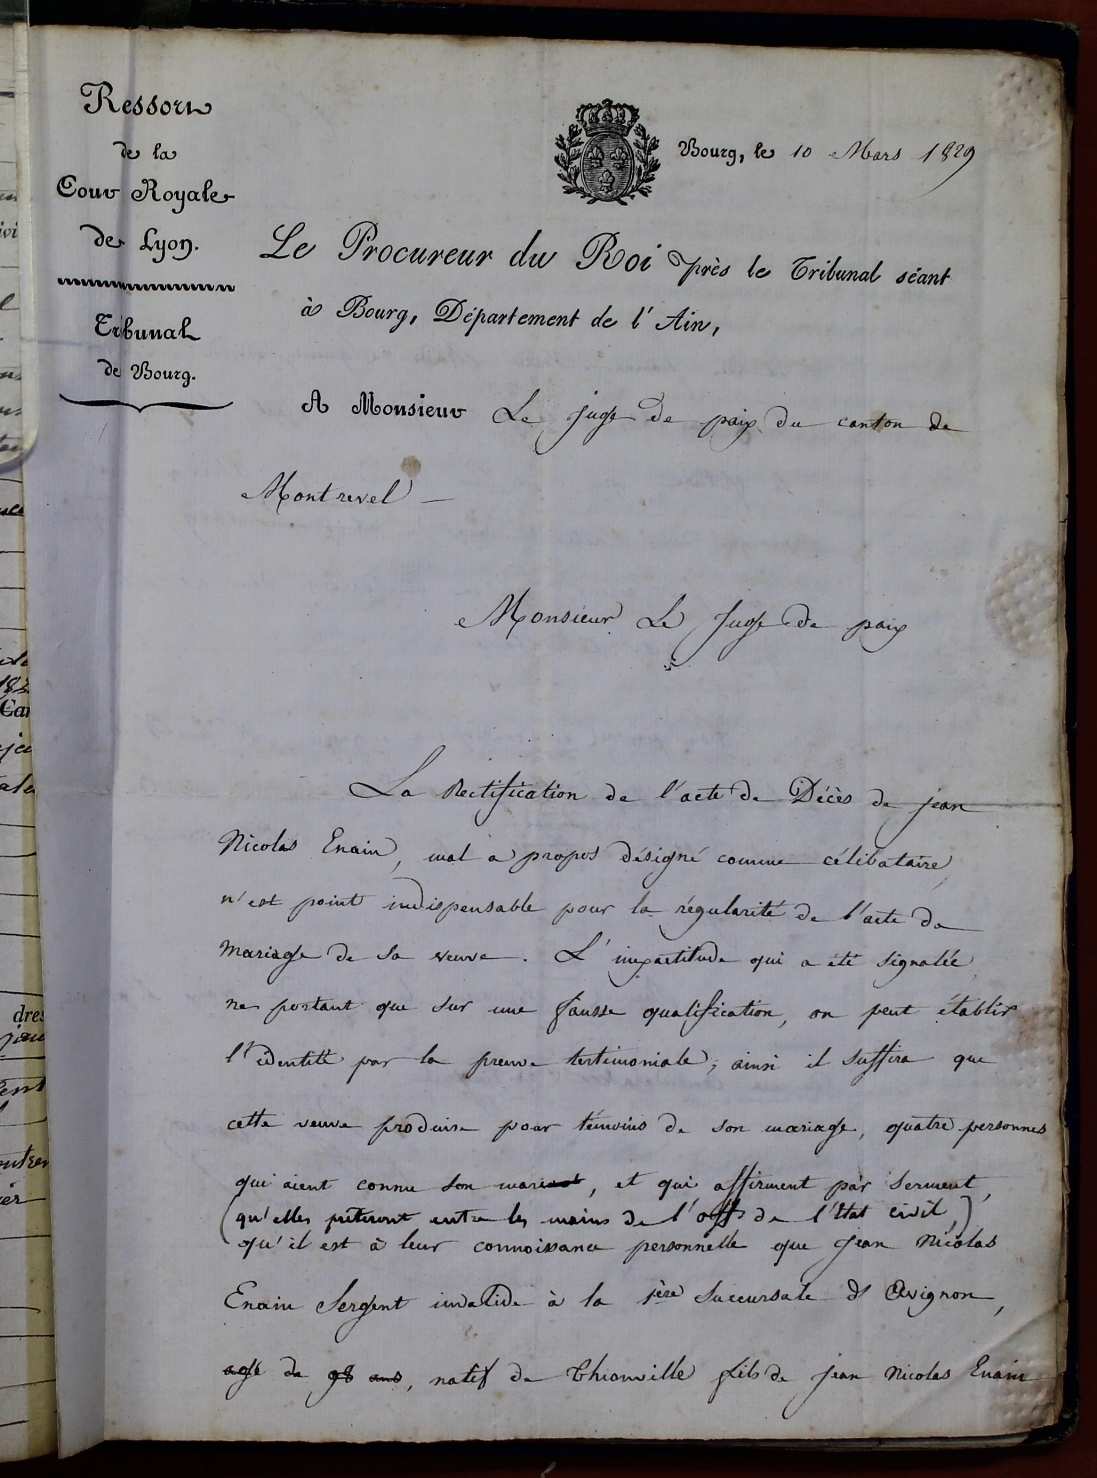 Ressort
de la
Cour Royale
de Lyon.
Tribunal
de Bourg.
Bourg, le 10 Mars 1829
Le Procureur du Roi près le Tribunal séant
à Bourg, Département de l'Ain,
A Monsieur Le juge de paix du canton de
Montrevel
Monsieur Le Juge de paix
La Rectification de l'acte de Décès de jean
Nicolas Enain, mal a propos désigné comme célibataire,
n'est point indispensable pour la régularité de l'acte de
mariage de sa veuve. L'inexactitude qui a été signalée
ne portant que sur une fausse qualification, on peut établir
l'identité par la preuve testimoniale; ainsi il suffira que
cette veuve produise pour témoins de son mariage, quatre personnes
qui aient connu son mari, et qui affirment par serment,
(qu'elles prêteront entre les mains de l'off de l'Etat civil,)
qu'il est à leur connoissance personnelle que Jean Nicolas
Enain Sergent invalide à la 1ère Succursale d'Avignon,
agé de 98 ans, natif de Thionville fils de jean Nicolas Enain